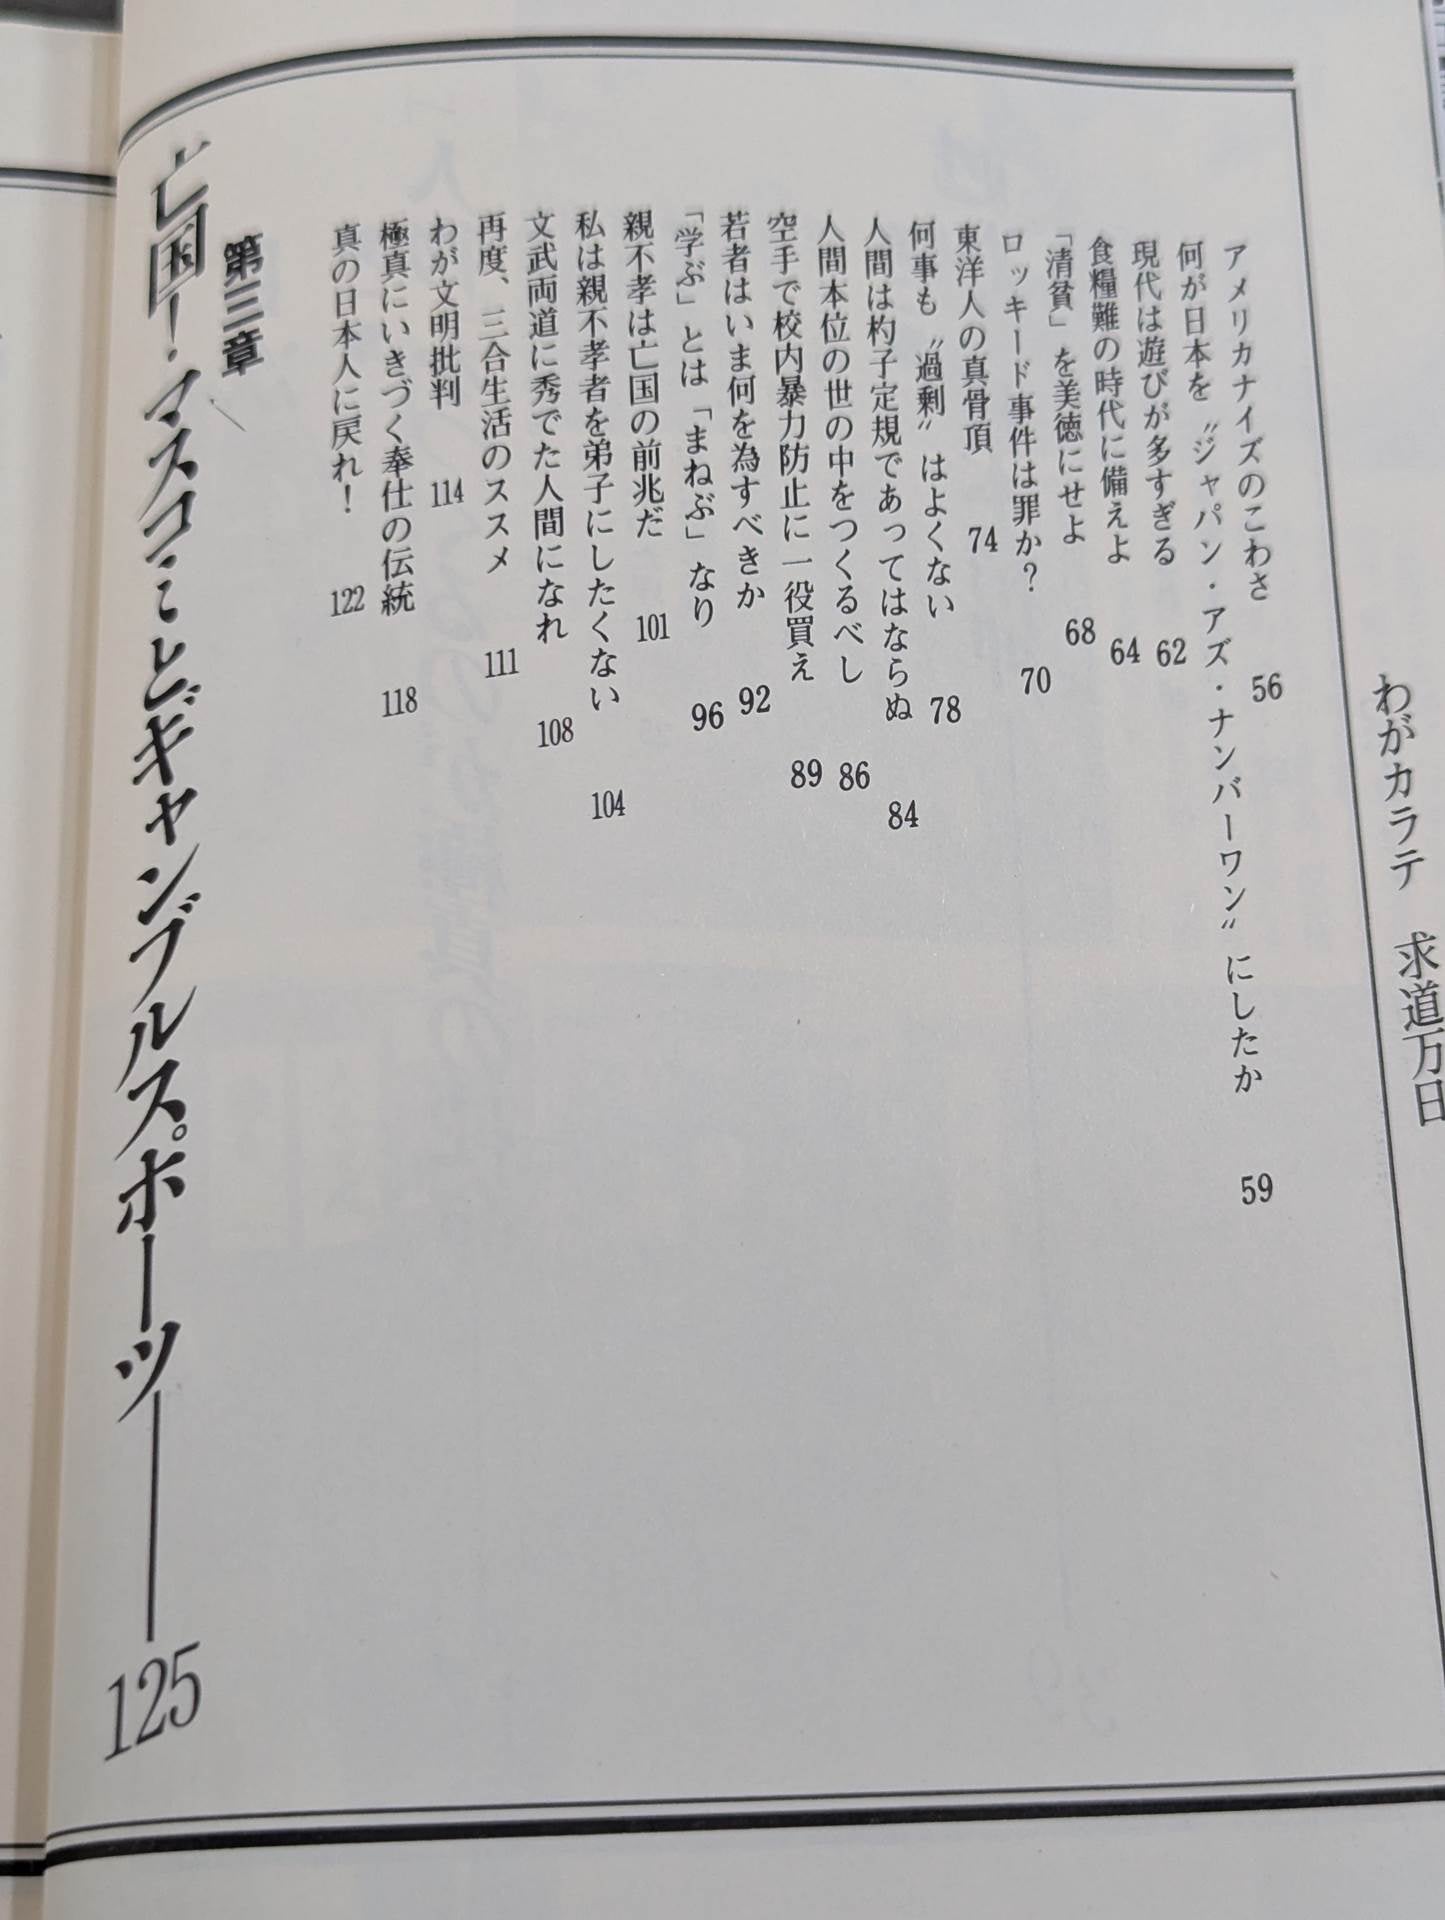 わがカラテ　求道万日
アメリカナイズのこわさ 56
何が日本を〝ジャパン・アズ・ナンバーワン〟にしたか 59
現代は遊びが多すぎる 62
食糧難の時代に備えよ 64
「清貧」を美徳にせよ 68
ロッキード事件は罪か？ 70
東洋人の真骨頂 74
何事も〝過剰〟はよくない 78
人間は杓子定規であってはならぬ 84
人間本位の世の中をつくるべし 86
空手で校内暴力防止に一役買え 89
若者はいま何を為すべきか 92
「学ぶ」とは「まねぶ」なり 96
親不孝は亡国の前兆だ 101
私は親不孝者を弟子にしたくない 104
文武両道に秀でた人間になれ 108
再度、三合生活のススメ 111
わが文明批判 114
極真にいきづく奉仕の伝統 118
真の日本人に戻れ！ 122
第三章
亡国！マスコミとギャンブルスポーツ 125